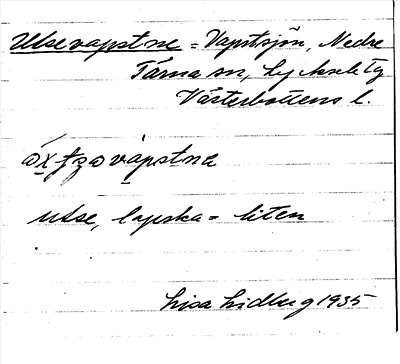 Utsevapstne = Vapstsjön, Nedre
Tärna sn, Lycksele tg
Västerbottens l.
vapstnə
utse, lapska = liten
Lisa Lidberg 1935